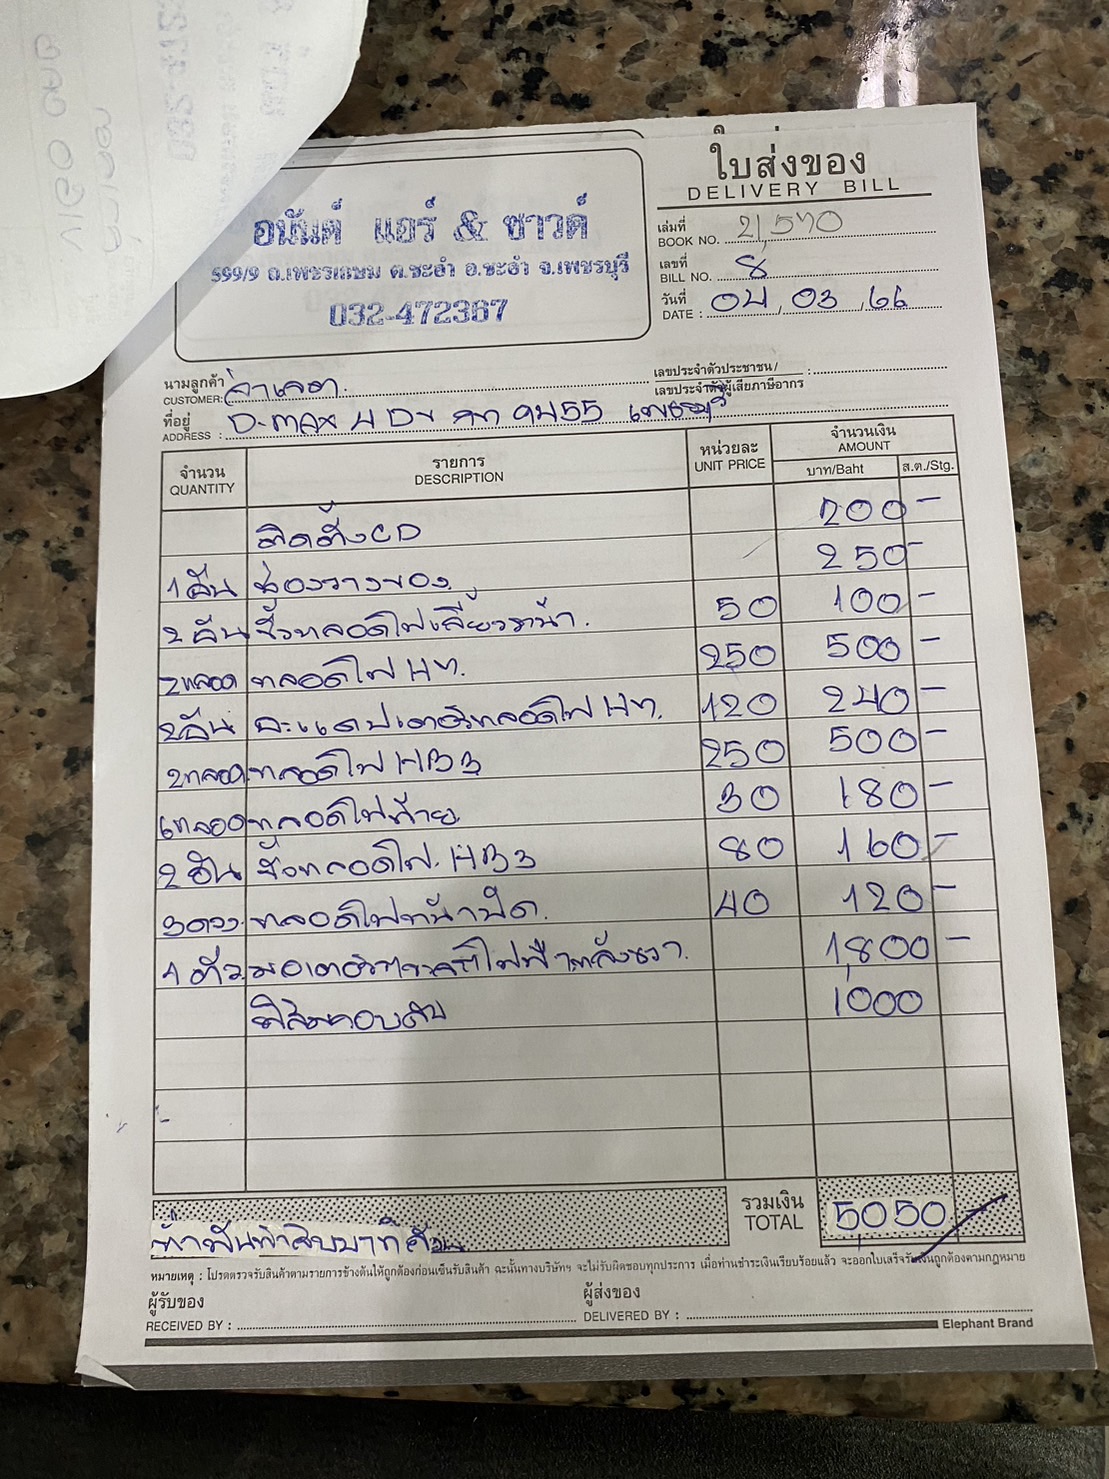 ใบส่งของ
DELIVERY BILL
อนันต์ แอร์ & ซาวด์
599/9 ถ.เพชรเกษม ต.ชะอำ อ.ชะอำ จ.เพชรบุรี
032-472367
เล่มที่
BOOK NO. 21,570
เลขที่
BILL NO. 8
วันที่
DATE : 04, 03, 66
นามลูกค้า
CUSTOMER:
เลขประจำตัวประชาชน/ :
เลขประจำตัวผู้เสียภาษีอากร
ที่อยู่
ADDRESS : D-max 4 Dr 9455 เพชรบุรี
จำนวน รายการ หน่วยละ จำนวนเงิน
QUANTITY DESCRIPTION UNIT PRICE AMOUNT
บาท/Baht ส.ต./Stg.
ติดตั้ง CD 200 -
1 อัน ช่องวางของ 250 -
2 อัน ขั้วหลอดไฟเลี้ยวหน้า 50 100 -
2 หลอด หลอดไฟ H7. 250 500 -
2 อัน อะแดปเตอร์หลอดไฟ H7. 120 240 -
2 หลอด หลอดไฟ HB3 250 500 -
6 หลอด หลอดไฟท้าย 30 180 -
2 อัน ขั้วหลอดไฟ HB3 80 160 -
3 ดวง หลอดไฟหน้าปัด 40 120 -
1 ตัว มอเตอร์ 1800 -
1000
รวมเงิน
TOTAL 5050
ห้าพันห้าสิบบาทถ้วน
หมายเหตุ : โปรดตรวจรับสินค้าตามรายการข้างต้นให้ถูกต้องก่อนเซ็นรับสินค้า ฉะนั้นทางบริษัทฯ จะไม่รับผิดชอบทุกประการ เมื่อท่านชำระเงินเรียบร้อยแล้ว จะออกใบเสร็จรับเงินถูกต้องตามกฎหมาย
ผู้รับของ ผู้ส่งของ
RECEIVED BY : DELIVERED BY :
Elephant Brand